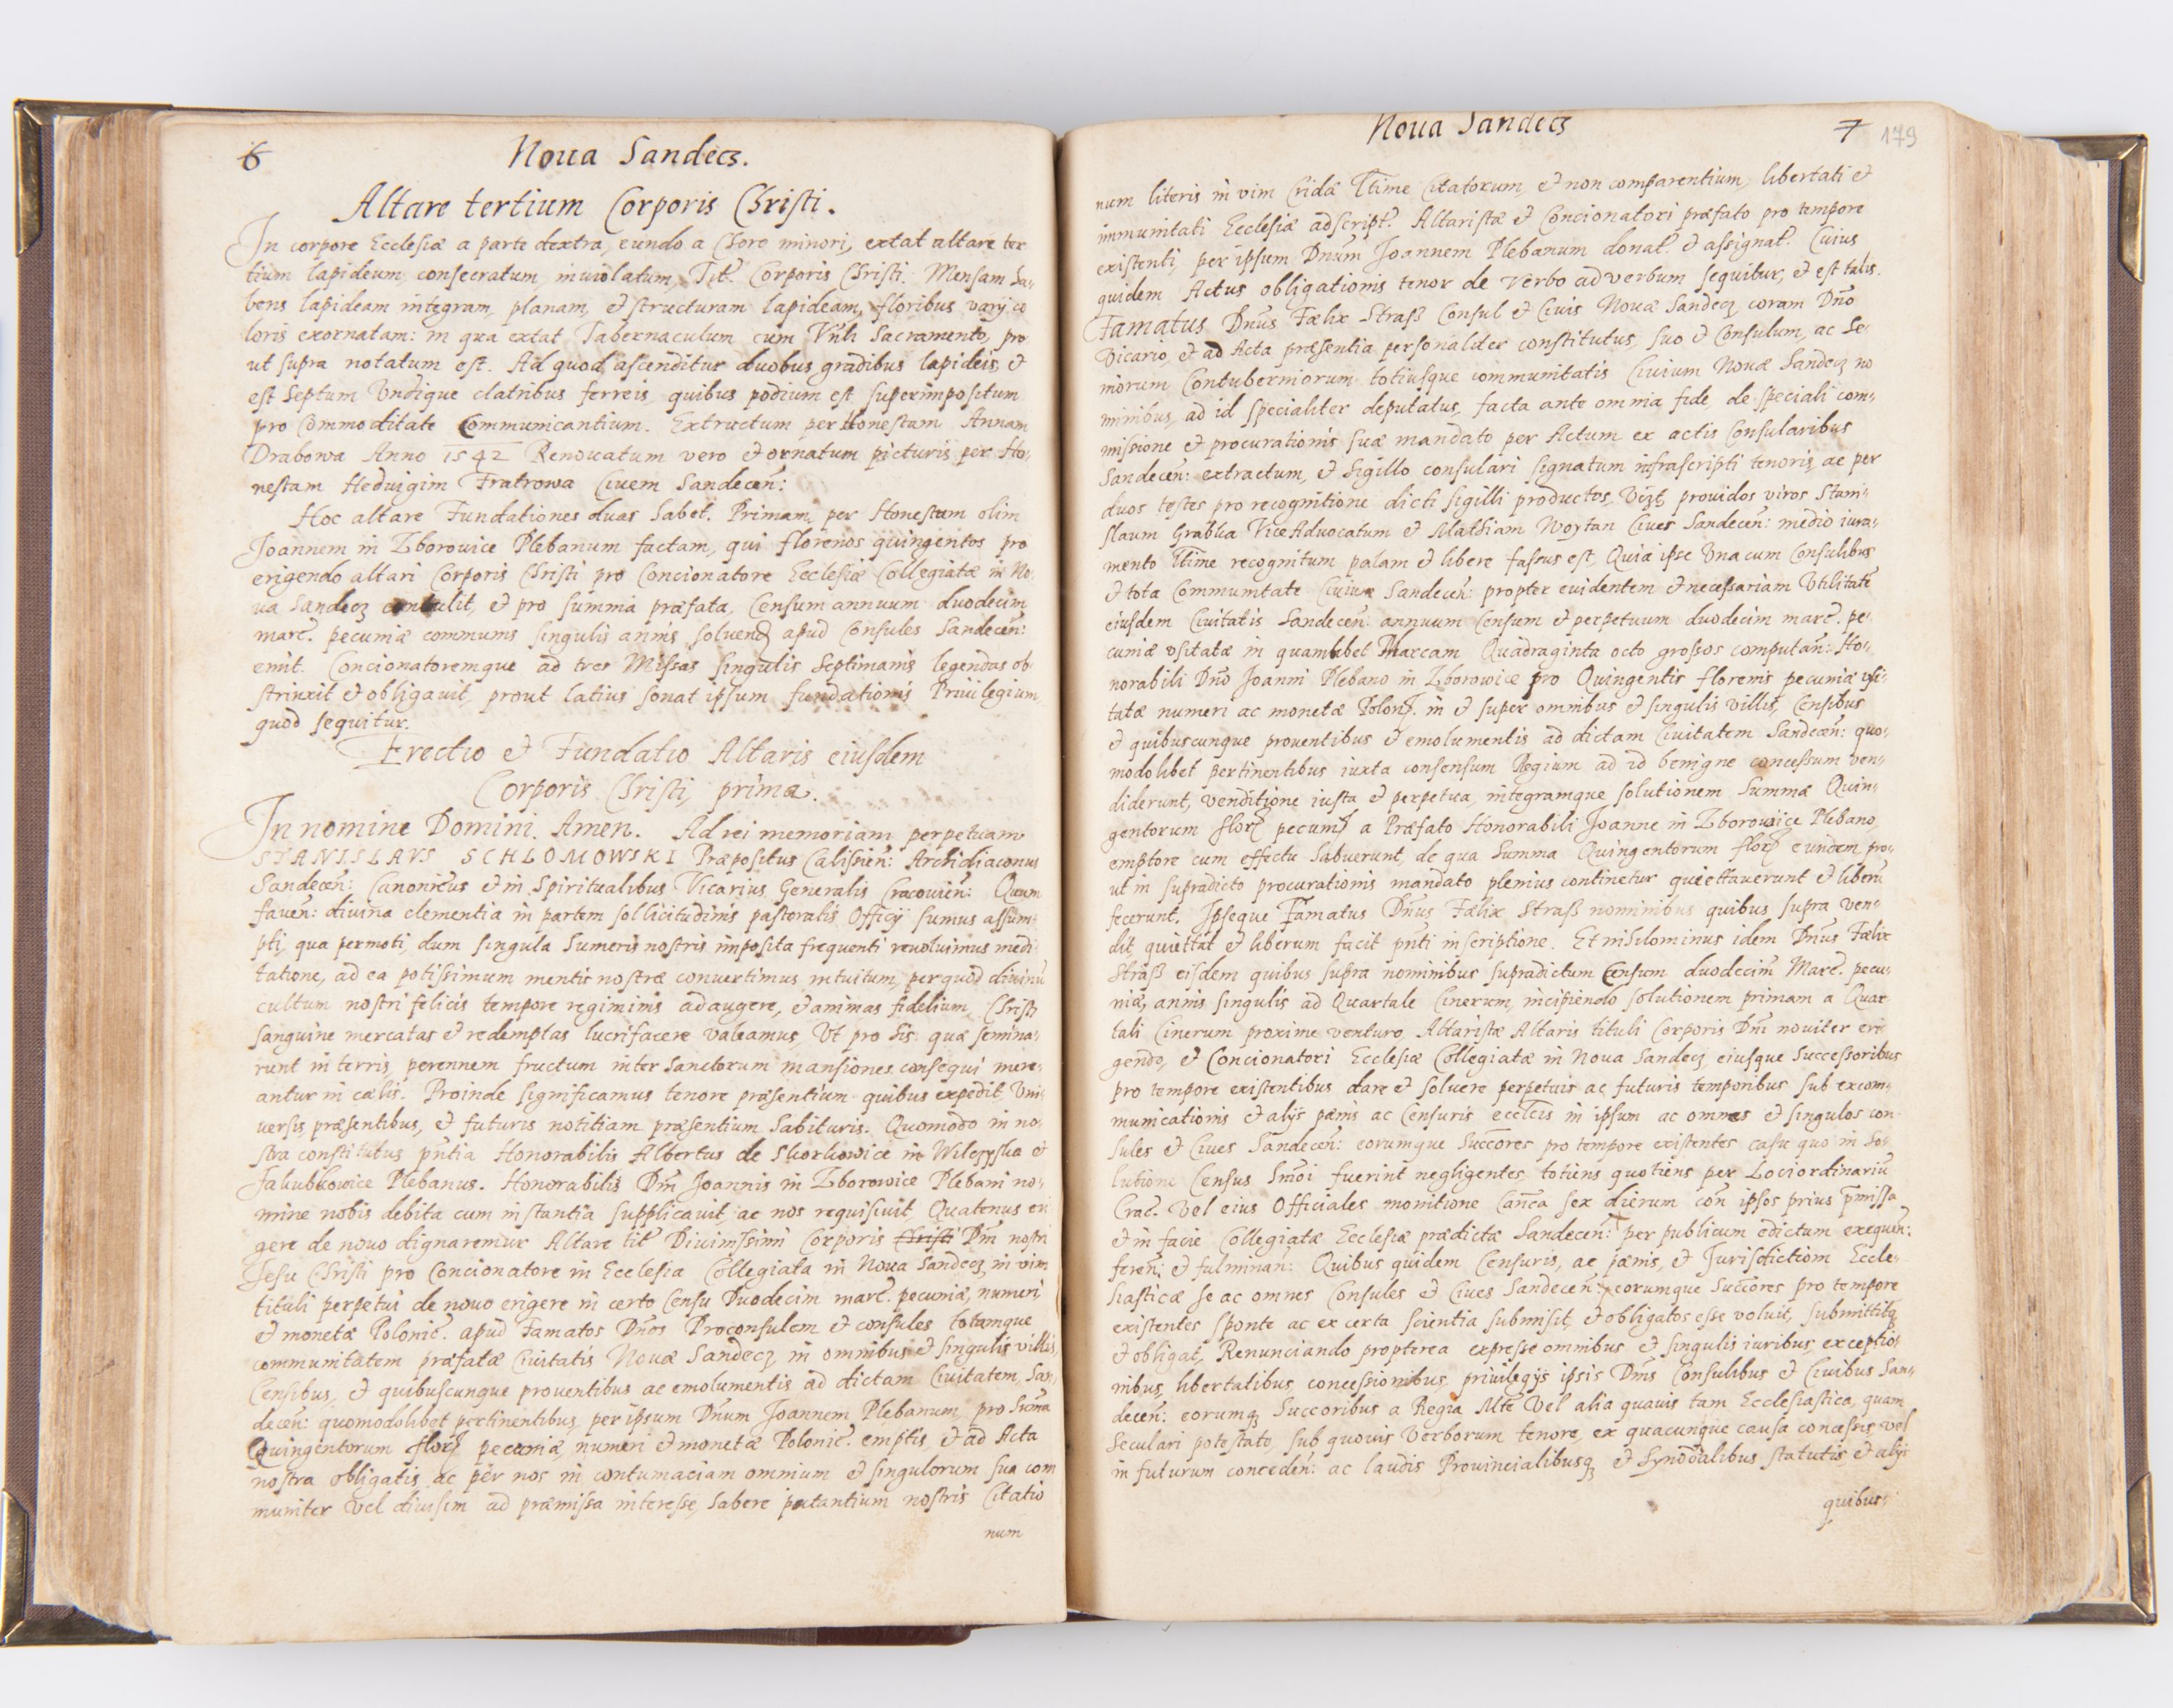 6
Noua Sandecz.
Altare tertium Corporis Christi.
In corpore Ecclesiæ a parte dextra, eundo a Choro minori, extat altare ter
tium lapideum, consecratum, inuiolatum, Tit. Corporis Christi. Mensam ha-
bens lapideam integram, planam, et structuram lapideam, floribus varij co
loris exornatam: in qua extat Tabernaculum cum Vnli Sacramento, pro
ut supra notatum est. Ad quod ascenditur duobus gradibus lapideis, et
est septum vndique clatribus ferreis, quibus podium est superimpositum
pro commoditate Communicantium. Extructum per Honestam Annam
Drabowa Anno 1542 Renouatum vero et ornatum picturis per Ho-
nestam Heduigim Fratrowa Ciuem Sandecen:
Hoc altare Fundationes duas habet. Primam, per Honestum olim
Joannem in Zborowice Plebanum factam, qui florenos quingentos pro
erigendo altari Corporis Christi pro Concionatore Ecclesiæ Collegiatæ in No-
ua Sandecz contulit, et pro summa præfata, Censum annuum duodecim
marc. pecuniæ communis singulis annis soluend apud Consules Sandecen:
emit. Concionatoremque ad tres Missas singulis Septimanis legendas ob-
strinxit et obligauit, prout latius sonat ipsum fundationis Priuilegium,
quod sequitur.
Erectio et Fundatio Altaris eiusdem
Corporis Christi, prima.
In nomine Domini. Amen. Ad rei memoriam perpetuam
STANISLAVS SCHLOMOWSKI Præpositus Calissien: Archidiaconus
Sandecen: Canonicus et in Spiritualibus Vicarius Generalis Cracouien: Quum
fauen: diuina clementia in partem sollicitudinis pastoralis Officij sumus assum-
pti, qua permoti, dum singula humeris nostris imposita frequenti reuoluimus medi-
tatione, ad ea potissimum mentis nostræ conuertimus intuitum, per quod diuinu
cultum nostri felicis tempore regiminis adaugere, et animas fidelium, Christi
sanguine mercatas et redemptas lucrifacere valeamus, Vt pro his quæ semina-
runt in terris, perennem fructum inter Sanctorum mansiones consequi mere-
antur in cælis. Proinde significamus tenore præsentium quibus expedit, Vni-
uersis præsentibus, et futuris notitiam præsentium habituris. Quomodo in no-
stra constitutus pntia Honorabilis Albertus de Skorkowice in Wilczyska et
Jakubkowice Plebanus. Honorabilis Dni Joannis in Zborowice Plebani no-
mine nobis debita cum instantia supplicauit, ac nos requisiuit, Quatenus eri
gere de nouo dignaremur Altare tit Diuinissimi Corporis Christi Dni nostri
Jesu Christi pro Concionatore in Ecclesia Collegiata in Noua Sandecz in vim
tituli perpetui de nouo erigere in certo Censu Duodecim marc. pecuniæ, numeri
et monetæ Polonic. apud Famatos Dnos Proconsulem et consules totamque
communitatem præfatæ Ciuitatis Nouæ Sandecz in omnibus et singulis villis,
Censibus, et quibuscunque prouentibus ac emolumentis ad dictam Ciuitatem, San-
decen: quomodolibet pertinentibus, per ipsum Dnum Joannem Plebanum, pro Suma
Quingentorum flor pecuniæ, numeri et monetæ Polonic. emptis, et ad Acta
nostra obligatis, ac per nos in contumaciam omnium et singulorum sua com
muniter vel diuisim ad præmissa interesse, habere putantium nostris Citatio
num
Noua Sandecz
7
179
num literis in vim Cridæ Ltime Citatorum, et non comparentium, libertati et
immunitati Ecclesiæ adscript. Altaristæ et Concionatori præfato pro tempore
existenti, per ipsum Dnum Joannem Plebanum donat. et assignat. Cuius
quidem Actus obligationis tenor de verbo ad verbum sequitur, et est talis.
Famatus Dnus Fælix Straß Consul et Ciuis Nouæ Sandecz coram Dno
Vicario, et ad Acta præsentia personaliter constitutus, suo et Consulum, ac Se-
niorum Contuberniorum totiusque communitatis Ciuium Nouæ Sandecz no
minibus, ad id specialiter deputatus, facta ante omnia fide, de speciali com-
missione et procurationis suæ mandato per Actum ex actis Consularibus
Sandecen: extractum, et Sigillo consulari signatum infrascripti tenoris, ac per
duos testes pro recognitione dicti sigilli productos, Vizt, prouidos viros Stani-
slaum Grabka Vice Aduocatum et Mathiam Woytan Ciues Sandecen: medio iura-
mento Ltime recognitum palam et libere fassus est, Quia ipse Vna cum Consulibus
et tota Communitate Ciuium Sandecen: propter euidentem et necessariam Vtilitate
eiusdem Ciuitatis Sandecen: annuum Censum et perpetuum duodecim marc. pe-
cuniæ vsitatæ in quamlibet Marcam Quadraginta octo grossos computan: Ho-
norabili Dno Joanni Plebano in Zborowice pro Quingentis florenis pecuniæ vsi-
tatæ numeri ac monetæ Polon. in et super omnibus et singulis villis, Censibus
et quibuscunque prouentibus et emolumentis ad dictam Ciuitatem Sandecen: quo-
modolibet pertinentibus iuxta consensum Regium ad id benigne concessum ven-
diderunt, venditione iusta et perpetua, integramque solutionem Summæ Quin-
gentorum flor pecuniæ a Præfato Honorabili Joanne in Zborowice Plebano,
emptore cum effectu habuerunt, de qua Summa Quingentorum flor eundem pro-
ut in supradicto procurationis mandato plenius continetur quiettauerunt et liberu
fecerunt. Ipseque Famatus Dnus Fælix Straß nominibus quibus supra ven-
dit, quiettat et liberum facit pnti inscriptione. Et nihilominus idem Dnus Fælix
Straß eisdem quibus supra nominibus supradictum Censum duodecim Marc. pecu-
niæ, annis singulis ad Quartale Cinerum, incipiendo solutionem primam a Quar
tali Cinerum proxime venturo, Altaristæ Altaris tituli Corporis Dni nouiter eri
gendo, et Concionatori Ecclesiæ Collegiatæ in Noua Sandecz eiusque Successoribus
pro tempore existentibus dare et soluere perpetuis ac futuris temporibus sub excom-
municationis et alijs pænis ac Censuris ecclcis in ipsum ac omnes et singulos con-
sules et Ciues Sandecen: eorumque Succores pro tempore existentes casu quo in So-
lutione Census Smoi fuerint negligentes, totiens quotiens per Loci ordinariu
Crac. vel eius Officiales monitione Canca sex dierum con ipsos prius pmissa
et in facie Collegiatæ Ecclesiæ prædictæ Sandecen: per publicum edictum exequen:
feren: et fulminan: Quibus quidem Censuris, ac pænis, et Jurisdictiom Eccle-
siasticæ se ac omnes Consules et Ciues Sandecen: eorumque Succores pro tempore
existentes sponte ac ex certa scientia submisit, et obligatos esse voluit, submittitq
et obligat, Renunciando propterea expresse omnibus et singulis iuribus, exceptio-
nibus, libertatibus, concessionibus, priuilegijs ipsis Dnis Consulibus et Ciuibus San-
decen: eorumq Succoribus a Regia Mte vel alia quauis tam Ecclesiastica, quam
Seculari potestate, sub quouis verborum tenore, ex quacunque causa concessis, vel
in futurum conceden: ac laudis Prouincialibusq et Synodalibus statutis, et alijs
quibus: